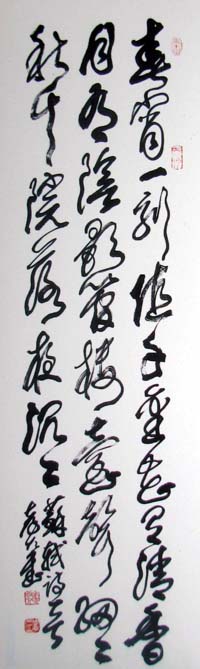 春宵一刻值千金花有清香
月有陰歌管樓臺聲細〻
秋千院落夜沉〻
蘇軾詩